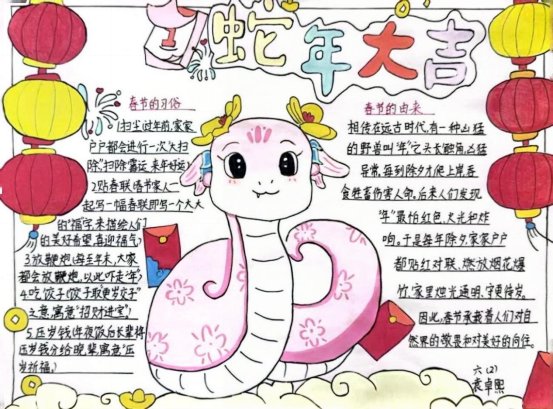 蛇年大吉
春节的习俗
1扫尘过年前,家家
户户都会进行一次大扫
除"扫除霉运,来年好运
2贴春联诸节家人一
起写一幅春联即写一个大大
的"福"字,来描绘人们
的美好希望,喜迎福气
3放鞭炮(每至年末,大家
都会放鞭炮,以此吓走"年"
4吃饺子(饺子取"更岁交子"
之意,寓意"招财进宝")
5压岁钱(年夜饭后长辈将
压岁钱分给晚辈寓意"压
岁祈福。)
春节的由来
相传在远古时代,有一种凶猛
的野兽叫"年"它头长触角,凶猛
异常,每到除夕才爬上岸吞
食牲畜伤害人命。后来人们发现
"年"最怕红色、火光和炸
响。于是每年除夕,家家户户
都贴红对联、燃放烟花爆
竹,家里烛光通明,守更待岁。
因此,春节承载着人们对自
然界的敬畏和对美好的向往。
六(2)
袁卓熙